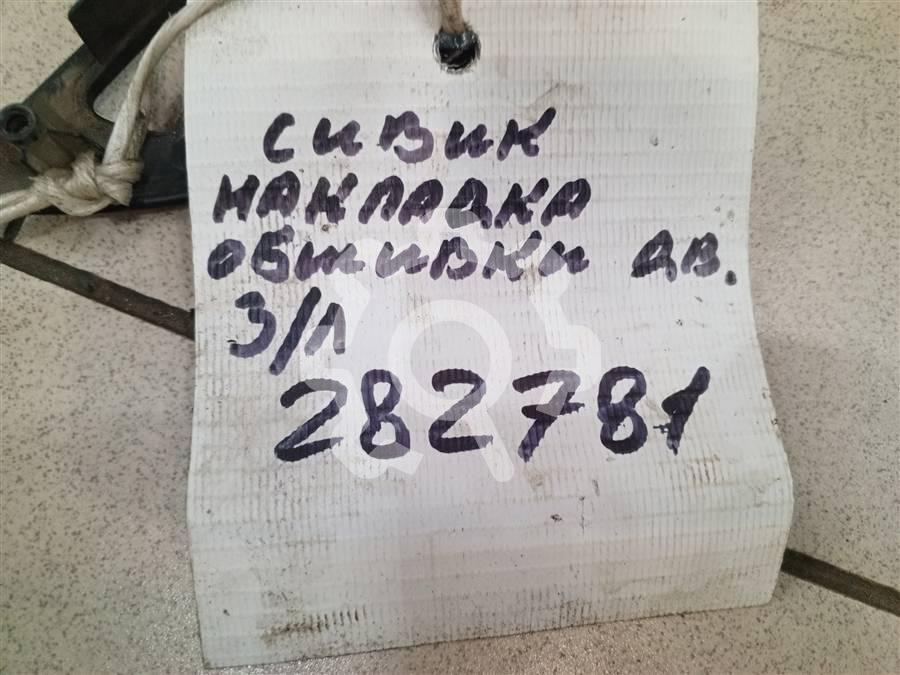 СИВИК
НАКЛАДКА
ОБШИВКИ ДВ.
З/Л
282781